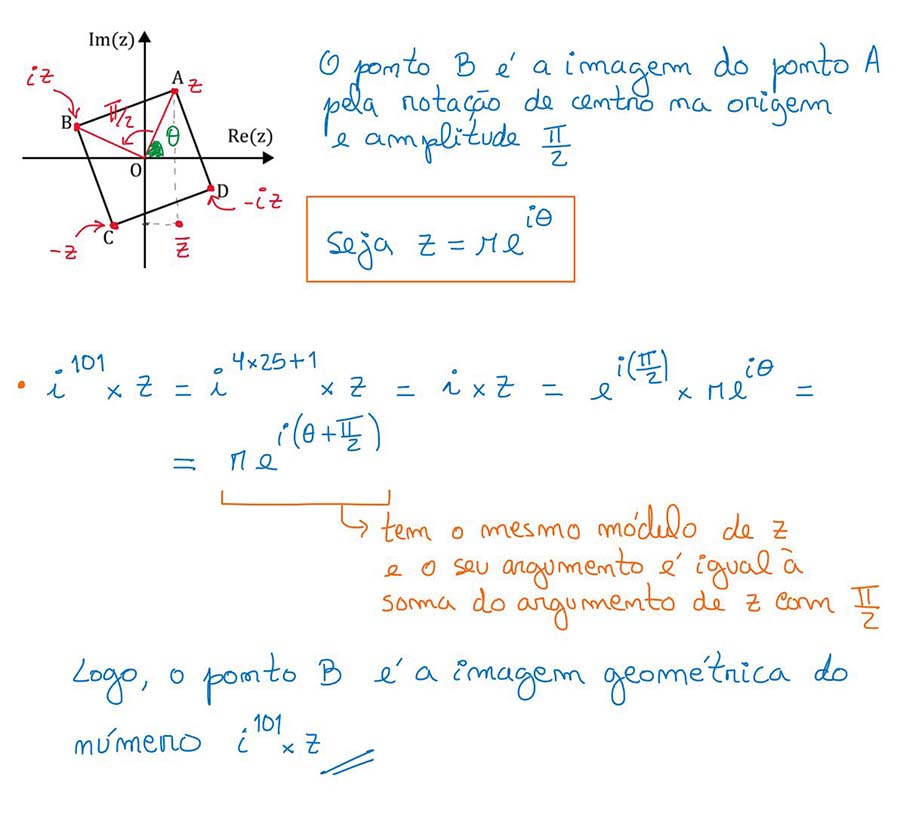 Im(z)
iz
A z
B π/2
θ
Re(z)
O
D
-iz
C
-z
z̅
O ponto B é a imagem do ponto A
pela rotação de centro na origem
e amplitude π/2
Seja z = re^{iθ}
• i^{101} × z = i^{4×25+1} × z = i × z = e^{i(π/2)} × re^{iθ} =
= re^{i(θ+π/2)}
↳ tem o mesmo módulo de z
e o seu argumento é igual à
soma do argumento de z com π/2
Logo, o ponto B é a imagem geométrica do
número i^{101} × z